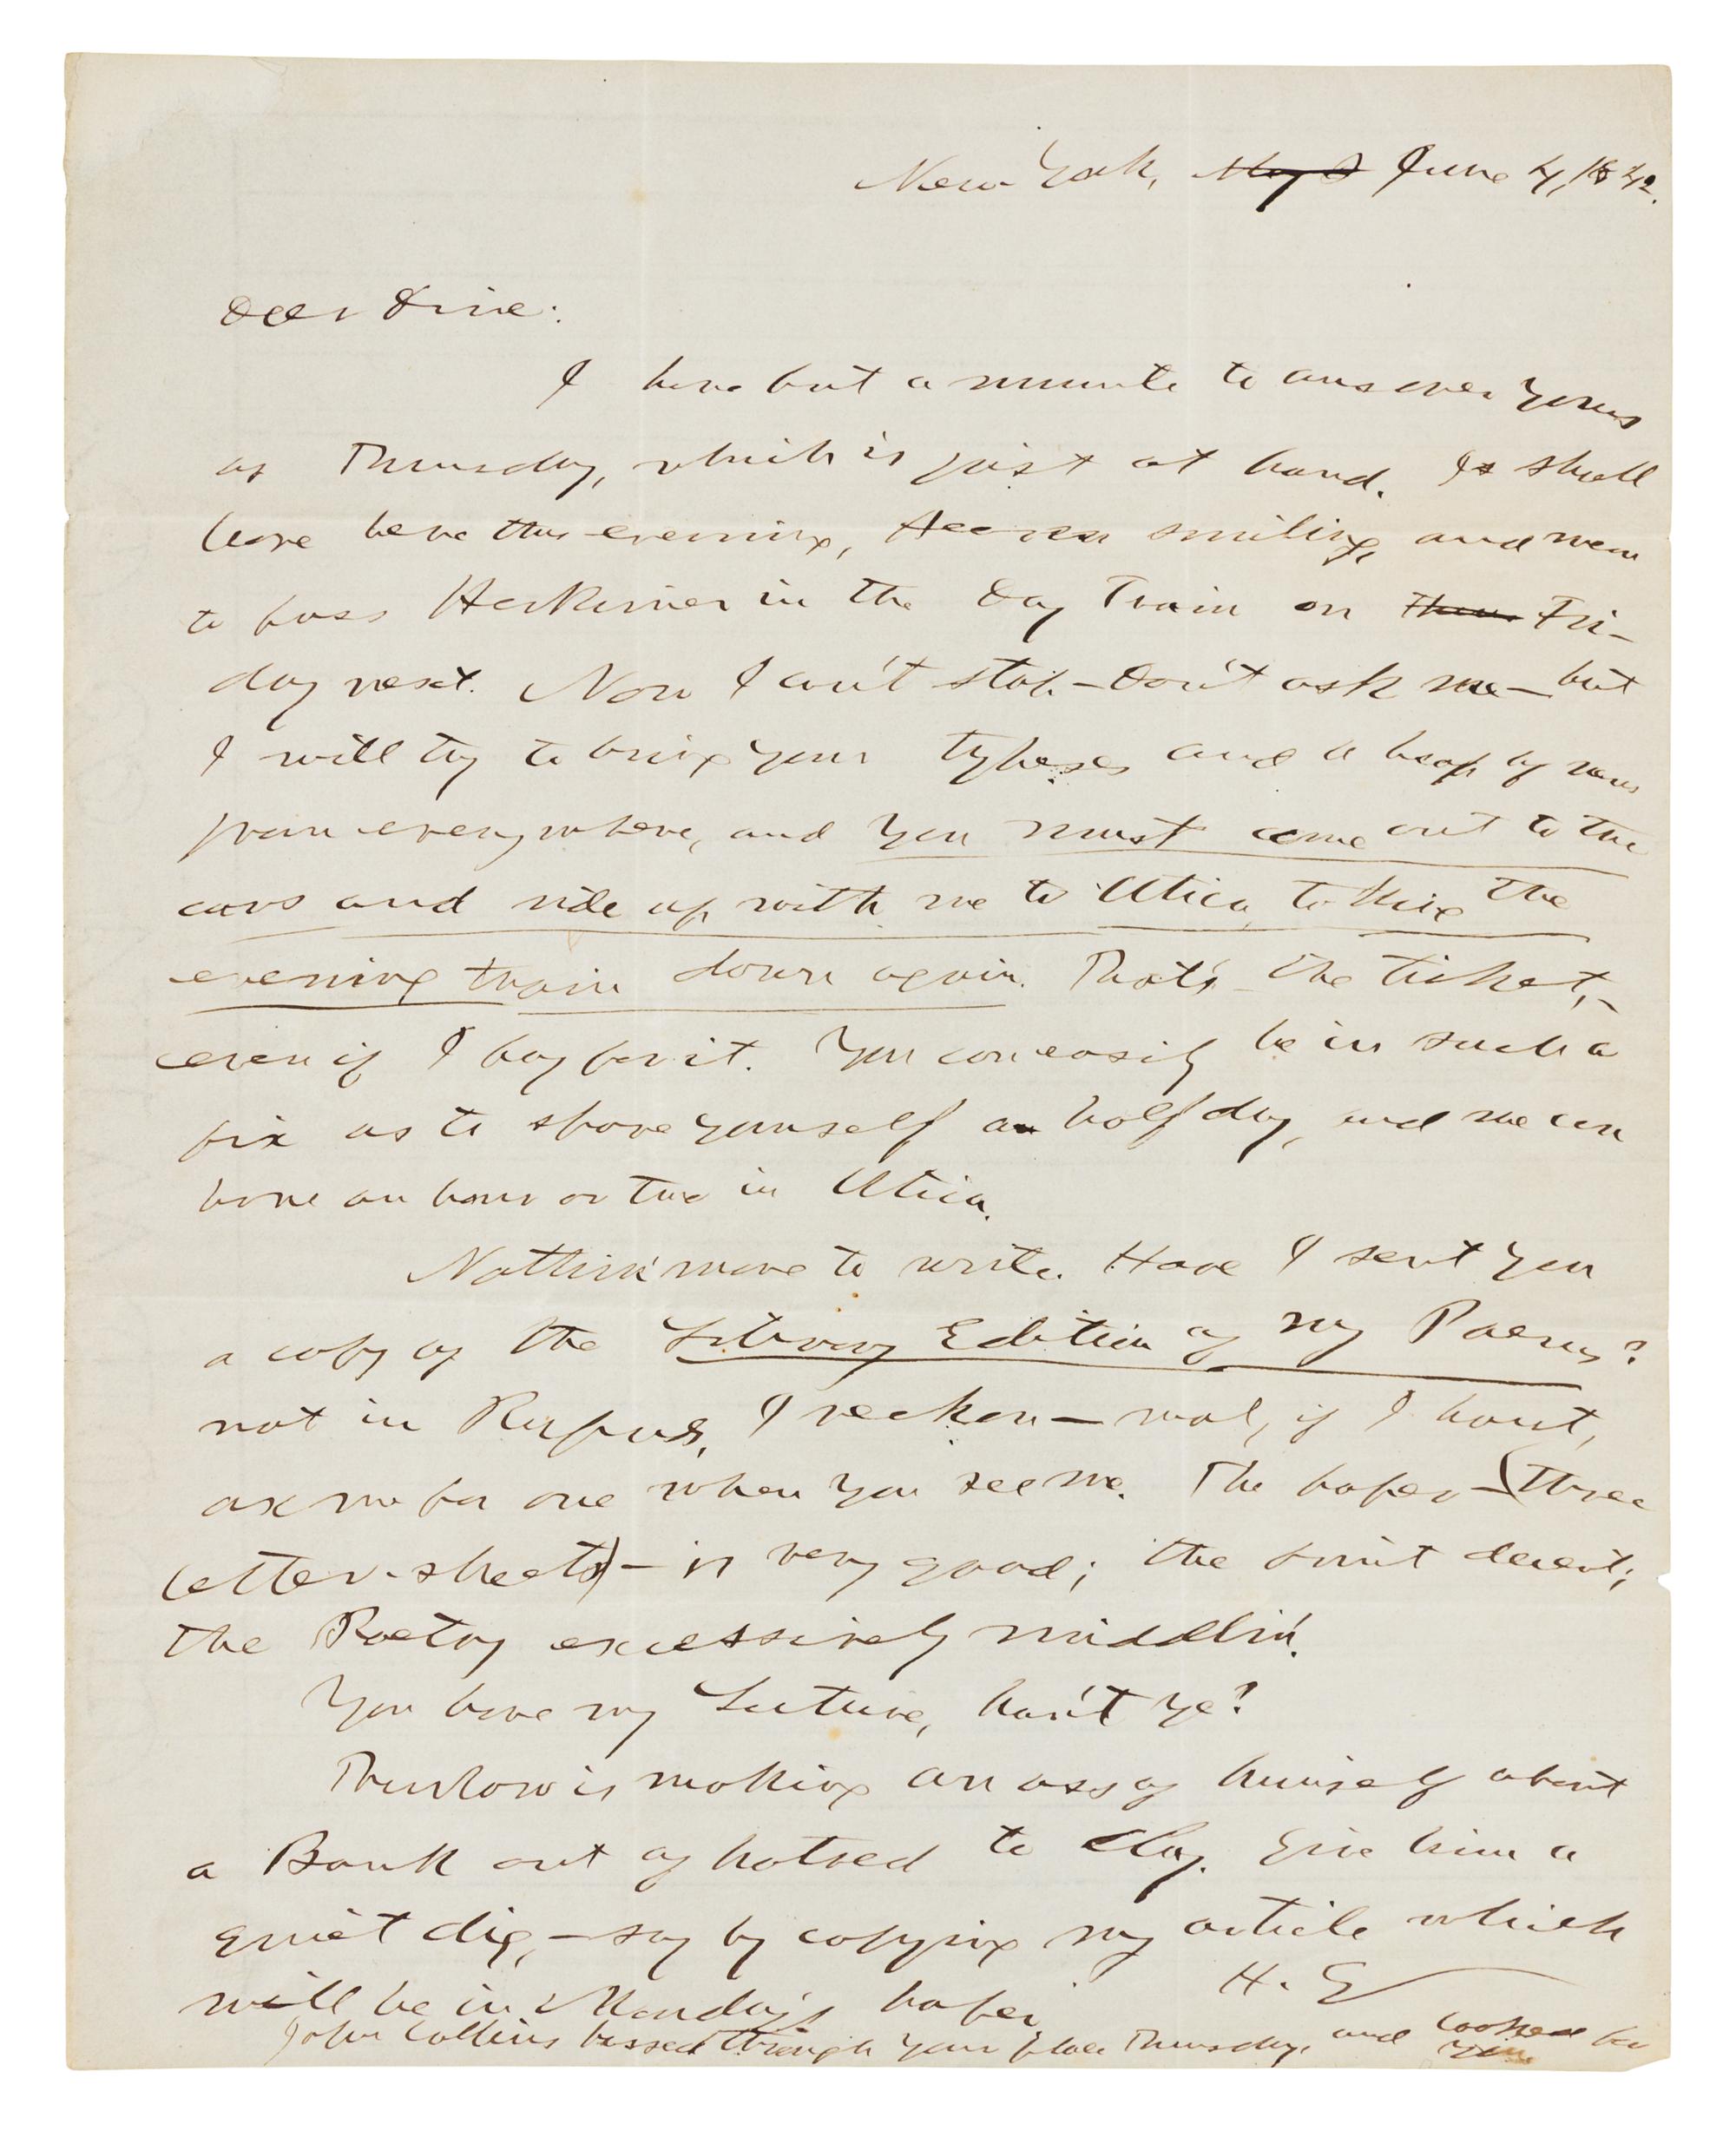 New York, ~~May 2~~ June 4, 1842.
Dear Friend:
I have but a minute to answer yours
of Thursday, which is just at hand. I shall
leave here this evening, Heaven smiling, and mean
to pass Herkimer in the Day Train on ~~Thurs~~ Fri-
day next. Now I can't stop—don't ask me—but
I will try to bring your typeses and a heap of news
from everywhere, and you must come out to the
cars and ride up with me to Utica, taking the
evening train down again. That's the ticket,—
even if I pay for it. You can easily be in such a
fix as to spare yourself a half day, and we can
have an hour or two in Utica.
Nothin' more to write. Have I sent you
a copy of the Library Edition of my Poems?
not in Rufus, I reckon—wal, if I haint,
ax me for one when you see me. The paper—(three
letter-sheets)—is very good; the print decent;
the Poetry excessively middlin'.
You have my Lecture, hain't ye?
Thurlow is making an ass of himself about
a Bank out of hatred to Clay. Give him a
quiet dig,—say by copying my article which
will be in Monday's paper.
H. G
John Collins passed through your place Thursday, and looked for
you.